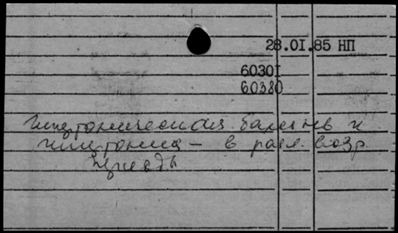 28.01.85 НП
60301
60380
Гипертоническая болезнь и
гипертония – в разл. возр.